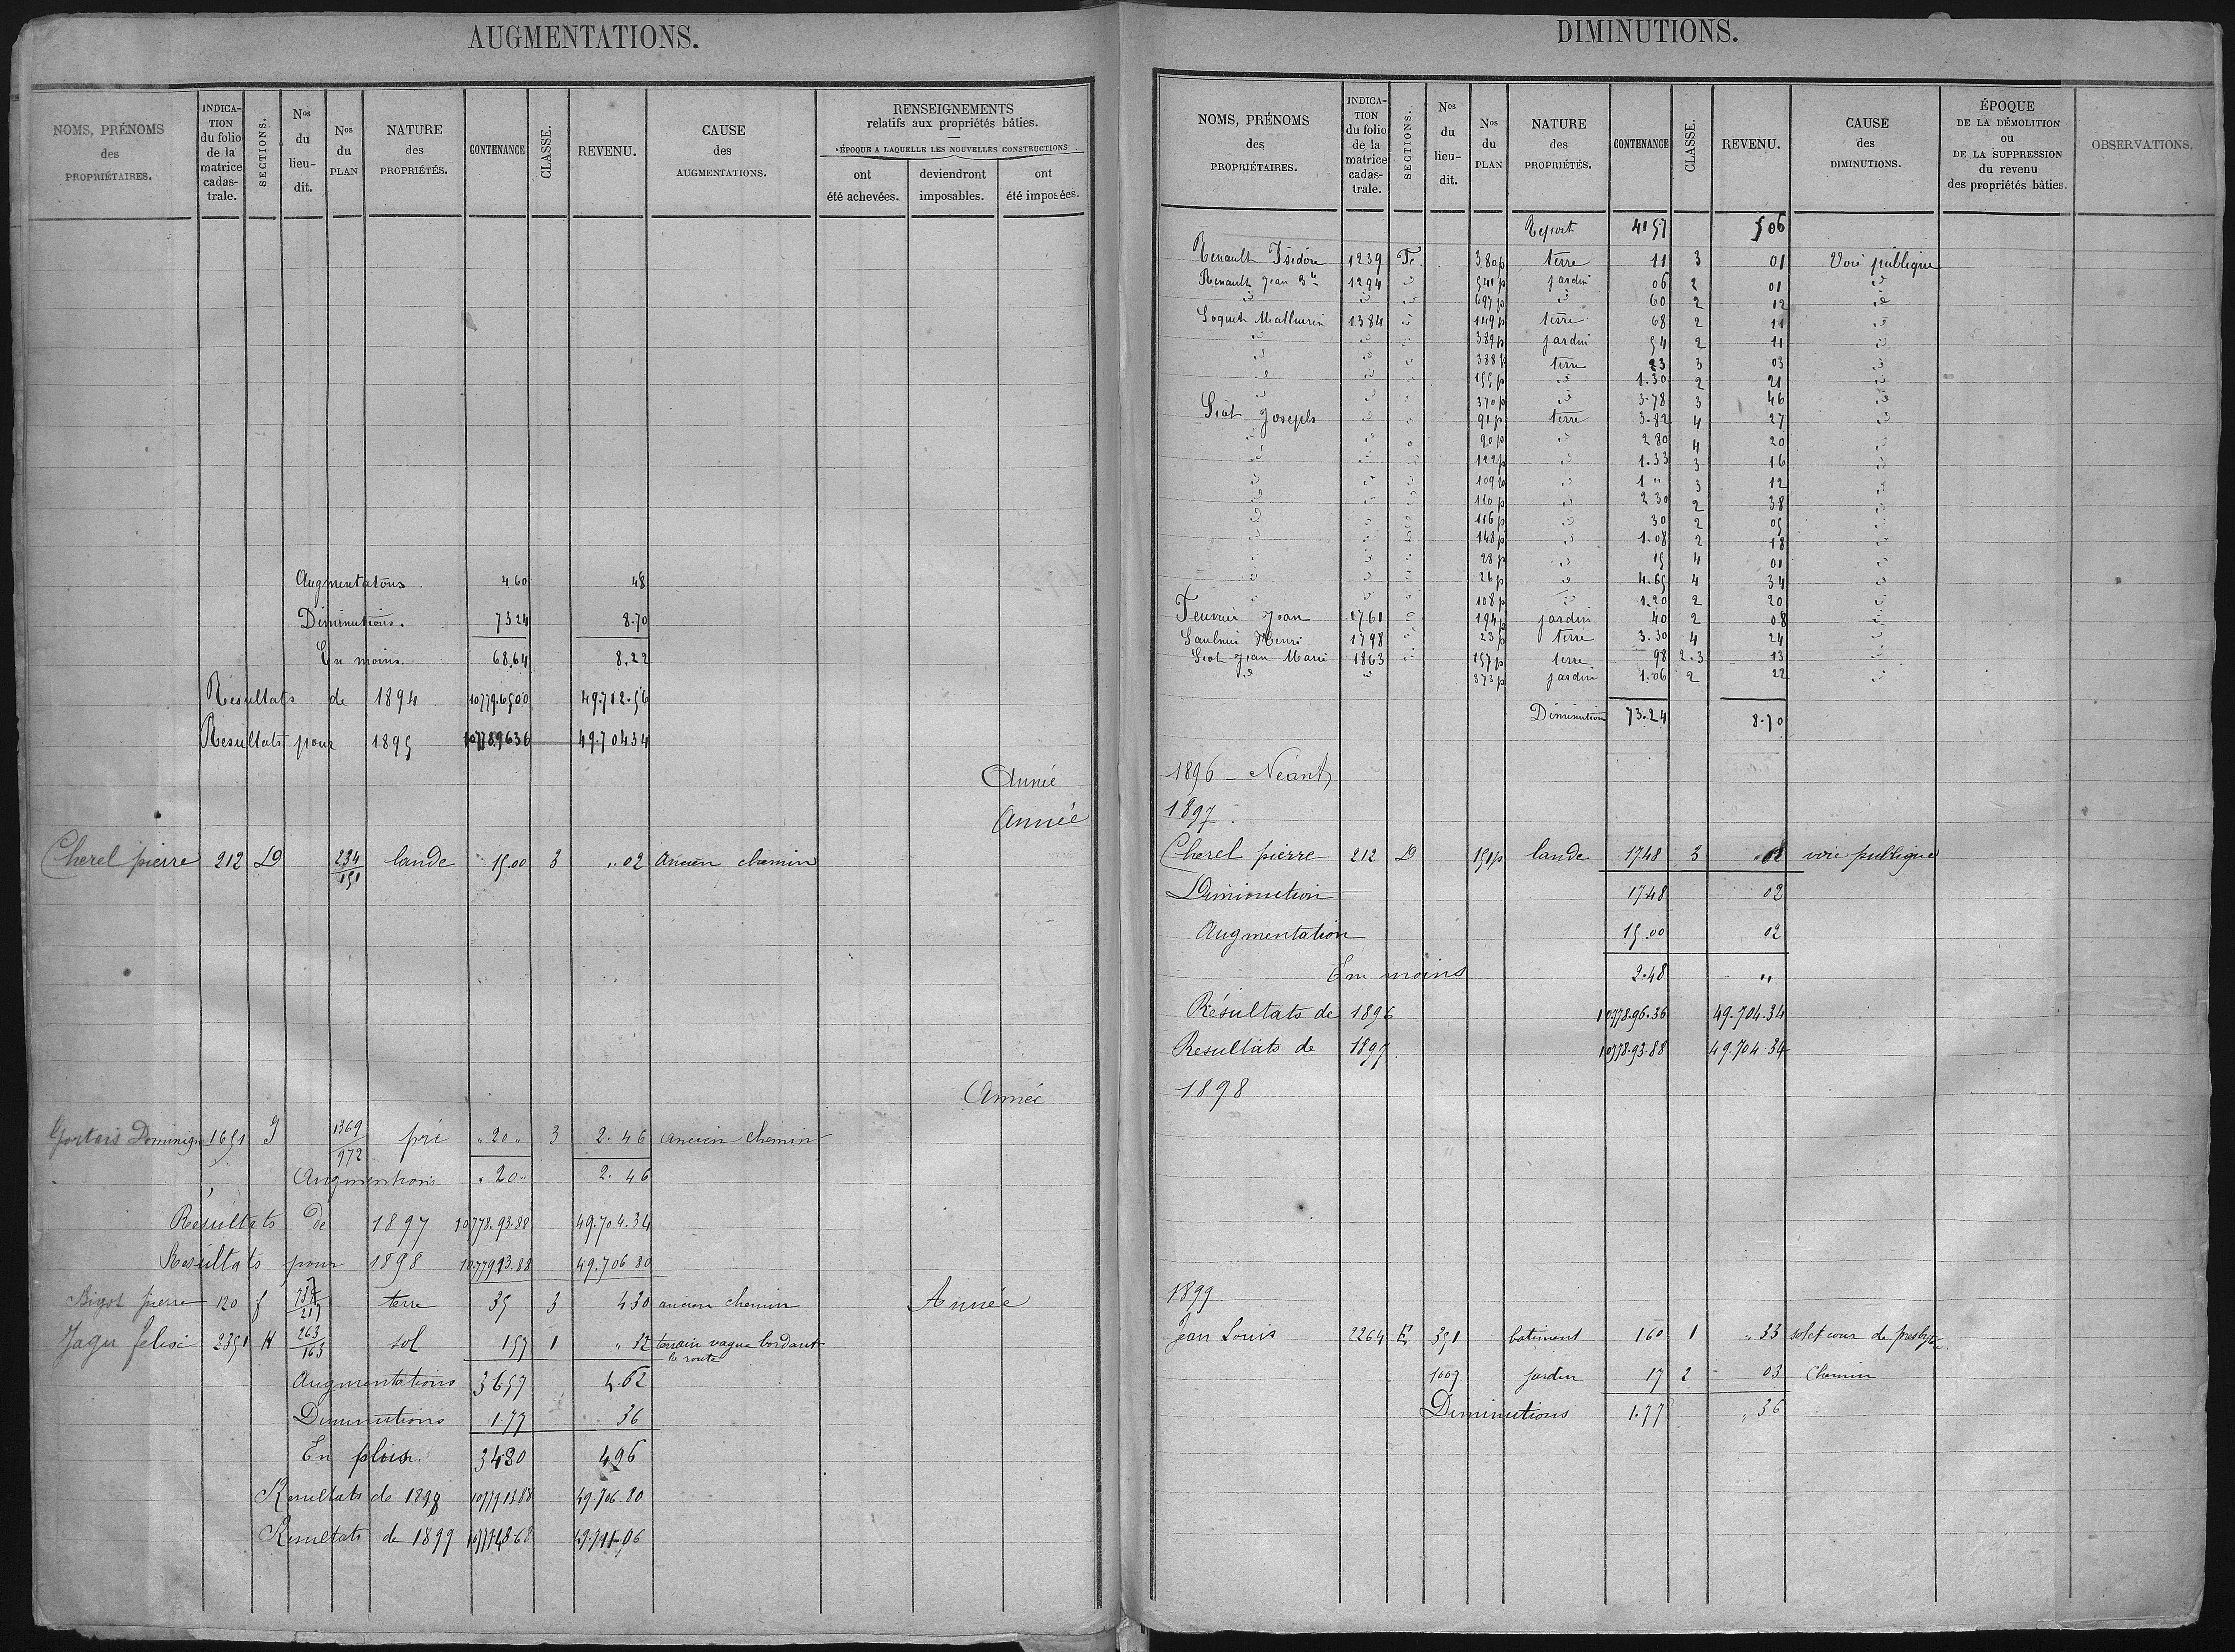 AUGMENTATIONS.
NOMS, PRÉNOMS des PROPRIÉTAIRES. INDICATION du folio de la matrice cadastrale. SECTIONS. Nos du lieu-dit. Nos du PLAN NATURE des PROPRIÉTÉS. CONTENANCE CLASSE. REVENU. CAUSE des AUGMENTATIONS. RENSEIGNEMENTS relatifs aux propriétés bâties. ÉPOQUE A LAQUELLE LES NOUVELLES CONSTRUCTIONS ont été achevées. deviendront imposables. ont été imposées.
Augmentatons 460 48
Diminutions. 7324 8.70
En moins. 68.64 8.22
Resultats de 1894 10779.6500 49.712.56
Resultats pour 1895 10778.9636 49.70434
Année
Année
Cherel pierre 212 D 234/151 lande 15.00 3 " 02 Ancien chemin
Année
Gortais Dominique 1651 J 1369/972 pré " 20 " 3 2.46 ancien chemin
Augmentions " 20 " 2.46
Résultats de 1897 10778.93.88 49.704.34
Resultats pour 1898 10779 13.88 49.706 80
Bigot pierre 120 f 217 terre 35 3 430 ancien chemin Année
Jagu felix 2351 H 263/163 sol 157 1 " 32 terrain vague bordant la route
Augmentations 3657 4.62
Diminutions 1.77 36
En plus. 3480 496
Resultats de 1898 10779.1388 49.706.80
Resultats de 1899
DIMINUTIONS.
NOMS, PRÉNOMS des PROPRIÉTAIRES. INDICATION du folio de la matrice cadastrale. SECTIONS. Nos du lieu-dit. Nos du PLAN NATURE des PROPRIÉTÉS. CONTENANCE CLASSE. REVENU. CAUSE des DIMINUTIONS. ÉPOQUE DE LA DÉMOLITION ou DE LA SUPPRESSION du revenu des propriétés bâties. OBSERVATIONS.
Report 4157 506
Renault Isidore 1239 380p terre 11 3 01 Voie publique
Renault Jean Bte 1294 " 541p jardin 06 2 01 "
" " " 697p " 60 2 12 "
Soquet Mathurin 1384 " 149p terre 68 2 11 "
" " " 389p jardin 54 2 11 "
" " " 388p terre 23 3 03 "
" " " 155p " 1.30 2 21 "
" " " 370p " 3.78 3 46 "
Siot Joseph " " 91p terre 3.82 4 27 "
" " " 90p " 2 80 4 20 "
" " " 122p " 1.33 3 16 "
" " " 109p " 1 " 3 12 "
" " " 110p " 2 30 2 38 "
" " " 116p " 30 2 05 "
" " " 148p " 1.08 2 18 "
" " " 28p " 15 4 01 "
" " " 26p " 4.65 4 34 "
" " " 108p " 1.20 2 20 "
Feuvrier Jean 1761 " 194p jardin 40 2 08 "
Saulnier Henri 1798 " 23p terre 3.30 4 24 "
Siot Jean Marie 1863 " 157p terre 98 2.3 13 "
" " 373p jardin 1.06 2 22 "
Diminution 73.24 8.70
1896 - Néant
1897
Cherel pierre 212 D 151p lande 17.48 3 02 voie publique
Diminution 17.48 02
Augmentation 15.00 02
En moins 2.48 "
Résultats de 1896 10778.96.36 49.704.34
Resultats de 1897 10778.93.88 49.704.34
1898
1899
Jean Louis 2264 E 351 batiment 160 1 " 33 sol et cour de presbytère
1007 jardin 17 2 03 Chemin
Diminutions 1.77 " 36